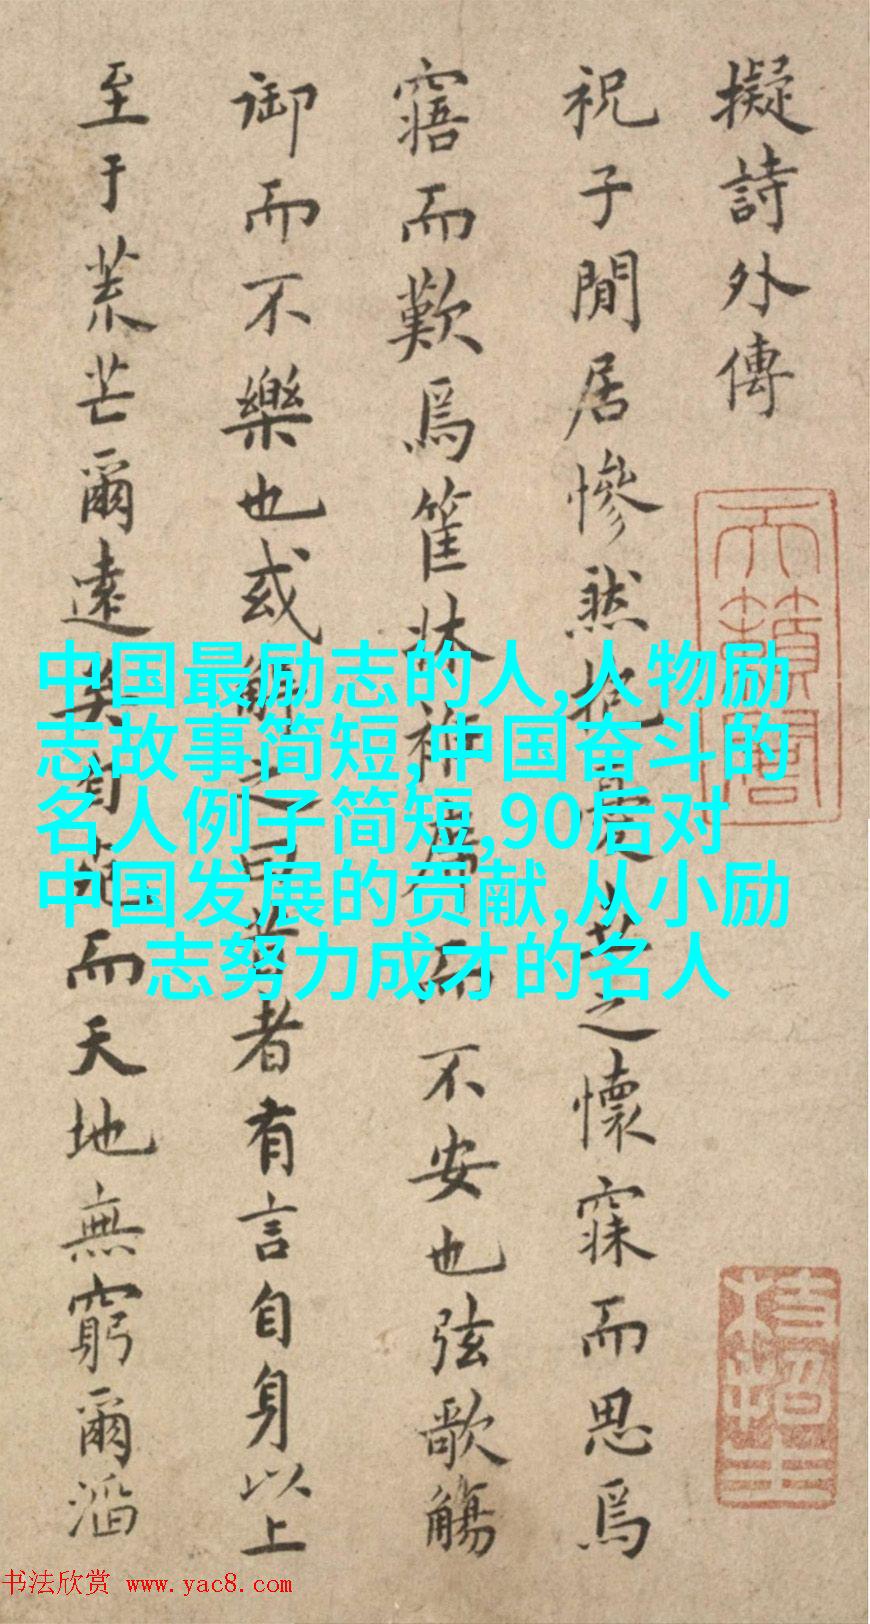 擬詩外傳
祝子閒居慘然抱憂世之懷寐而思焉
寤而歎焉筐牀衽席而不安也弦歌觴
御而不樂也或解之曰昔者有言自身以上
至于荒芒爾遠矣自死而天地無窮爾滔
天籟閣
中国最励志的人,人物励
志故事简短,中国奋斗的
名人例子简短,90后对
中国发展的贡献,从小励
志努力成才的名人
书法欣赏 www.yac8.com